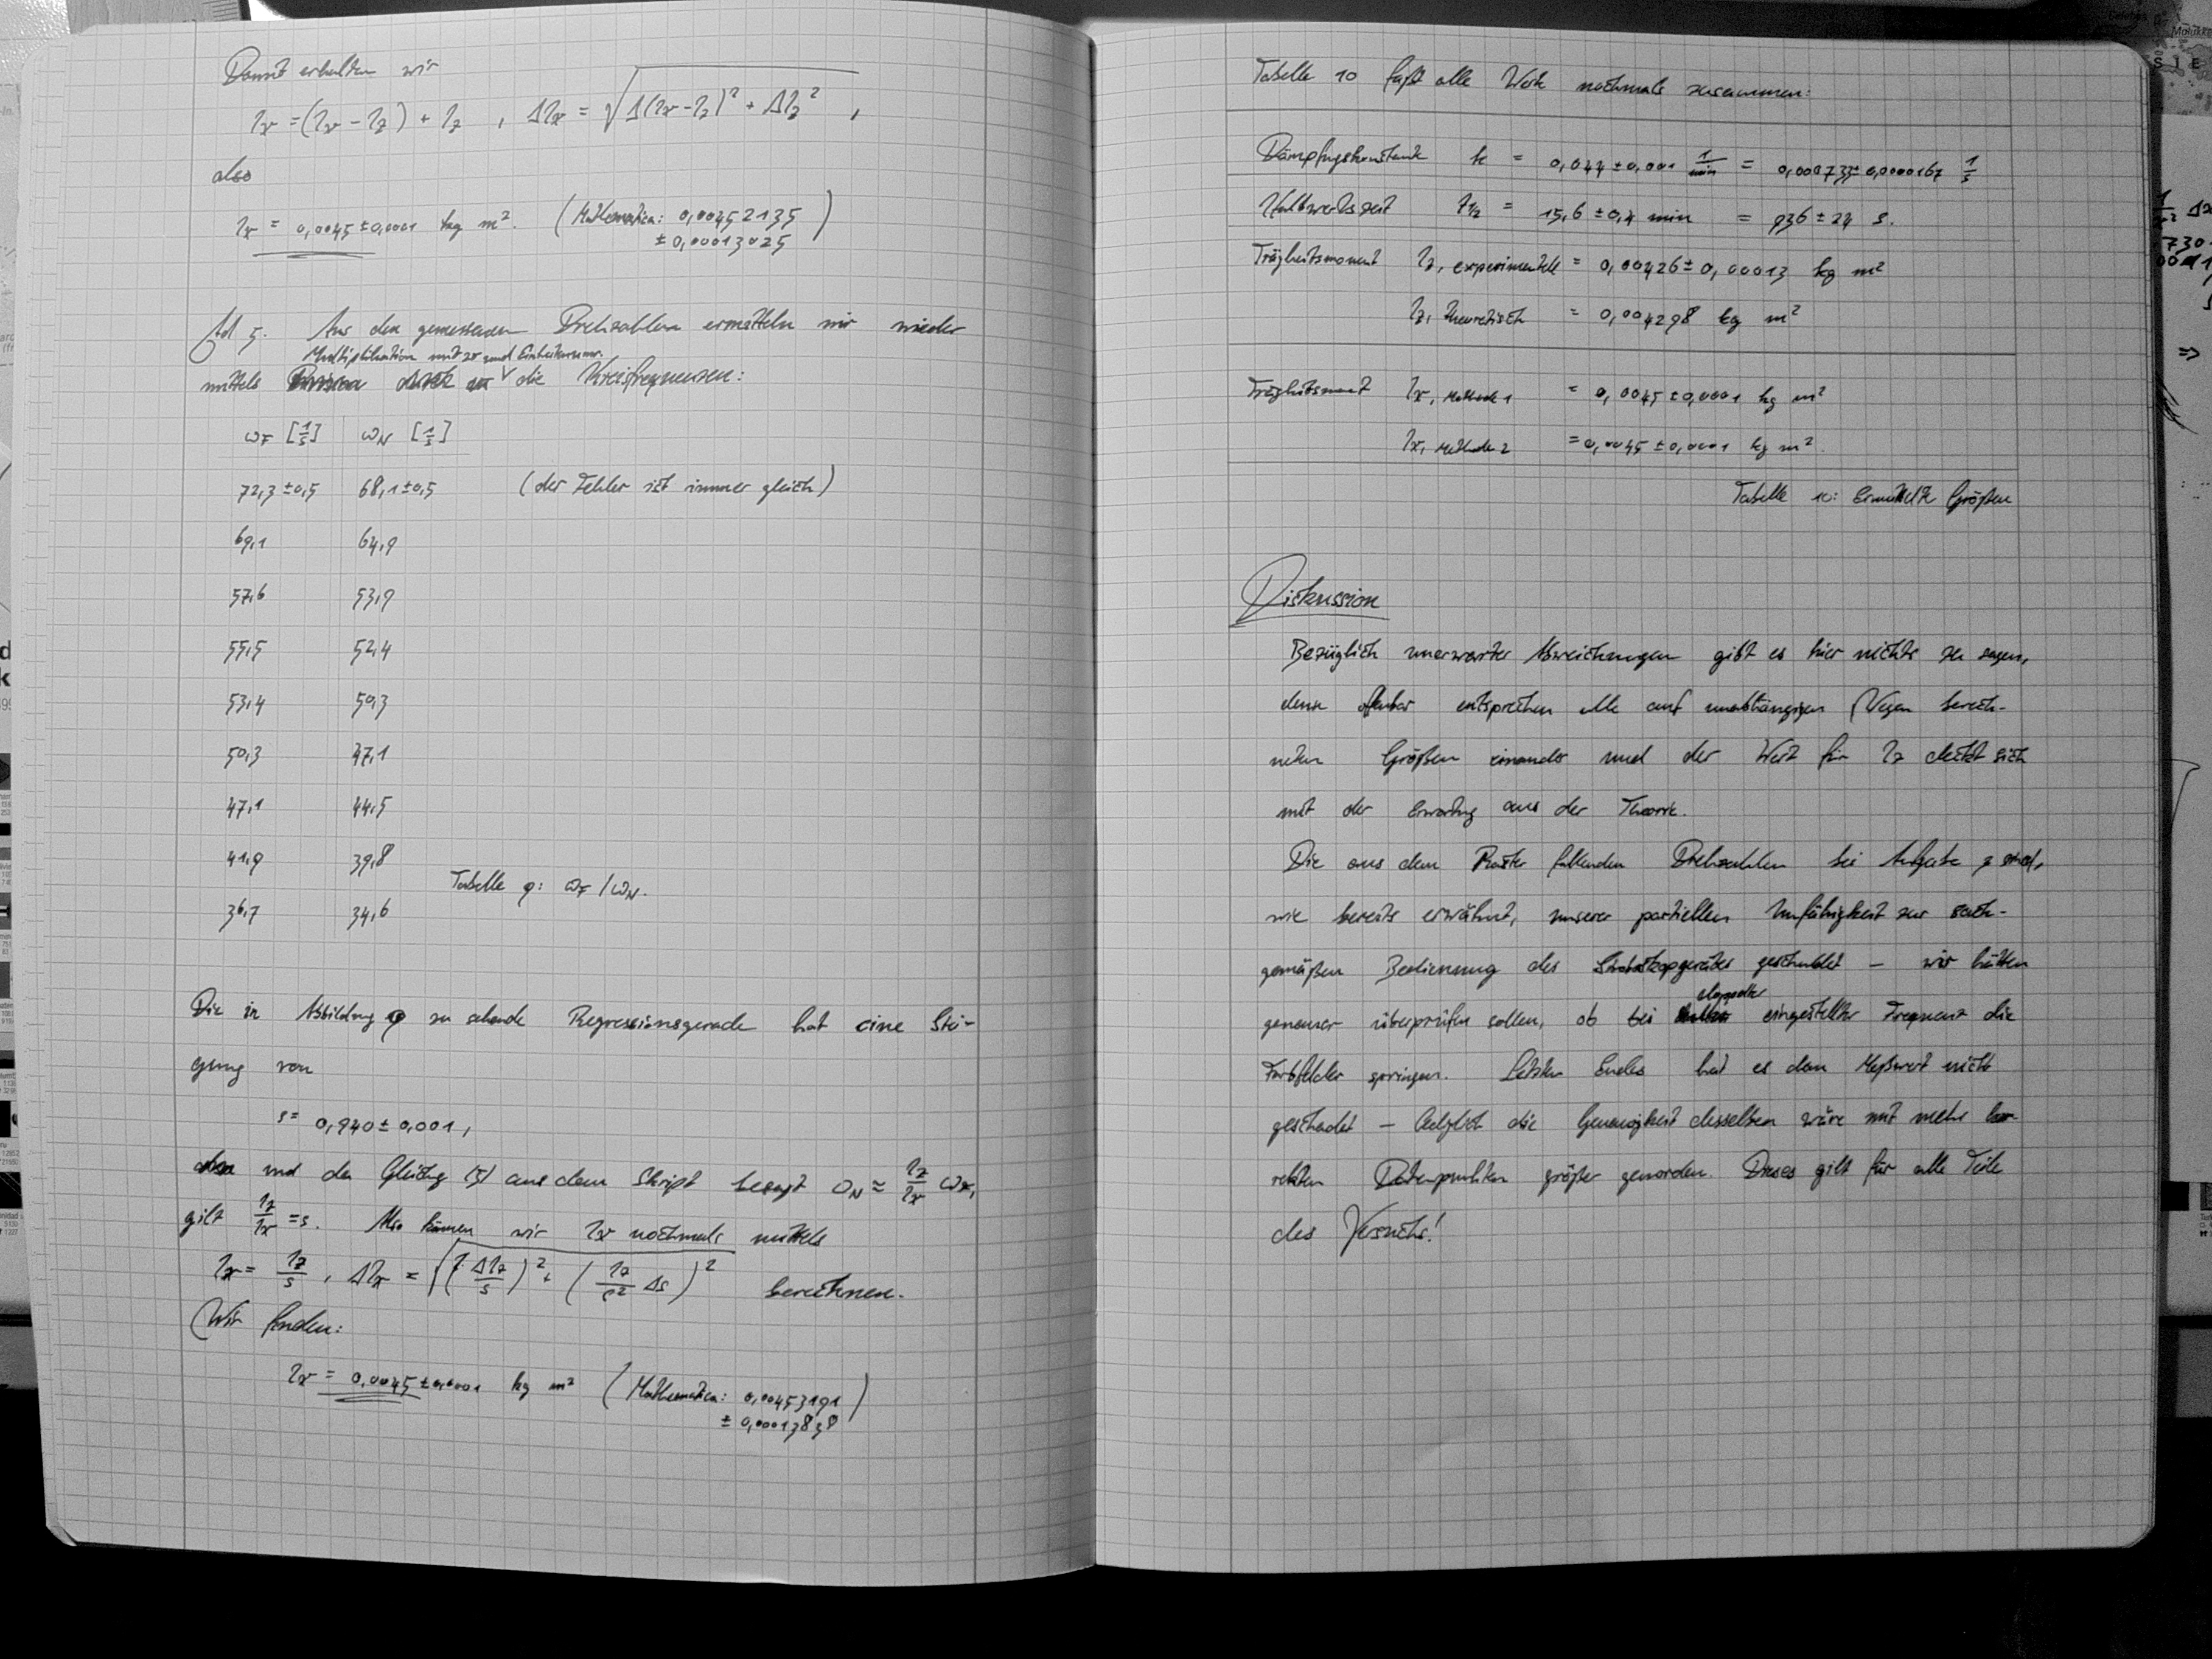 Damit erhalten wir
Ix = (Ix - Iz) + Iz , ΔIx = √(Δ(Ix-Iz)² + ΔIz²) ,
also
Ix = 0,0045 ± 0,0001 kg m². (Mathematica: 0,00452135
± 0,00013025)
Ad 5. Aus den gemessenen Drehzahlen ermitteln wir wieder
Multiplikation mit 2π und Einheitenumr.
mittels die Kreisfrequenzen:
ωF [1/s] ωN [1/s]
72,3 ± 0,5 68,1 ± 0,5 (der Fehler ist immer gleich)
69,1 64,9
57,6 53,9
55,5 52,4
53,4 50,3
50,3 47,1
47,1 44,5
41,9 39,8
Tabelle 9: ωF / ωN.
36,7 34,6
Die in Abbildung 9 zu sehende Regressionsgerade hat eine Stei-
gung von
s = 0,940 ± 0,001,
und da Gleichung (5) aus dem Skript besagt ωN ≈ Iz/Ix ωF,
gilt Iz/Ix = s. Also können wir Ix nochmals mittels
Ix = Iz/s , ΔIx = √((ΔIz/s)² + (Iz/s² Δs)²) berechnen.
Wir finden:
Ix = 0,0045 ± 0,0001 kg m² (Mathematica: 0,00453191
± 0,00013838)
Tabelle 10 faßt alle Werte nochmals zusammen:
Dämpfungskonstante k = 0,044 ± 0,001 1/min = 0,000733 ± 0,0000167 1/s
Halbwertszeit t½ = 15,6 ± 0,4 min = 936 ± 24 s.
Trägheitsmoment Iz, experimentell = 0,00426 ± 0,00013 kg m²
Iz, theoretisch = 0,004298 kg m²
Trägheitsmoment Ix, Methode 1 = 0,0045 ± 0,0001 kg m²
Ix, Methode 2 = 0,0045 ± 0,0001 kg m².
Tabelle 10: Ermittelte Größen
Diskussion
Bezüglich unerwarteter Abweichungen gibt es hier nichts zu sagen,
denn offenbar entsprechen alle auf unabhängigen Wegen berech-
neten Größen einander und der Wert für Iz deckt sich
mit der Erwartung aus der Theorie.
Die aus dem Raster fallenden Drehzahlen bei Aufgabe 3 sind,
wie bereits erwähnt, unserer partiellen Unfähigkeit zur sach-
gemäßen Bedienung des Stroboskopgerätes geschuldet – wir hätten
genauer überprüfen sollen, ob bei doppelter eingestellter Frequenz die
Farbfelder springen. Letzten Endes hat es dem Meßwert nicht
geschadet – lediglich die Genauigkeit desselben wäre mit mehr kor-
rekten Datenpunkten größer geworden. Dieses gilt für alle Teile
des Versuchs!